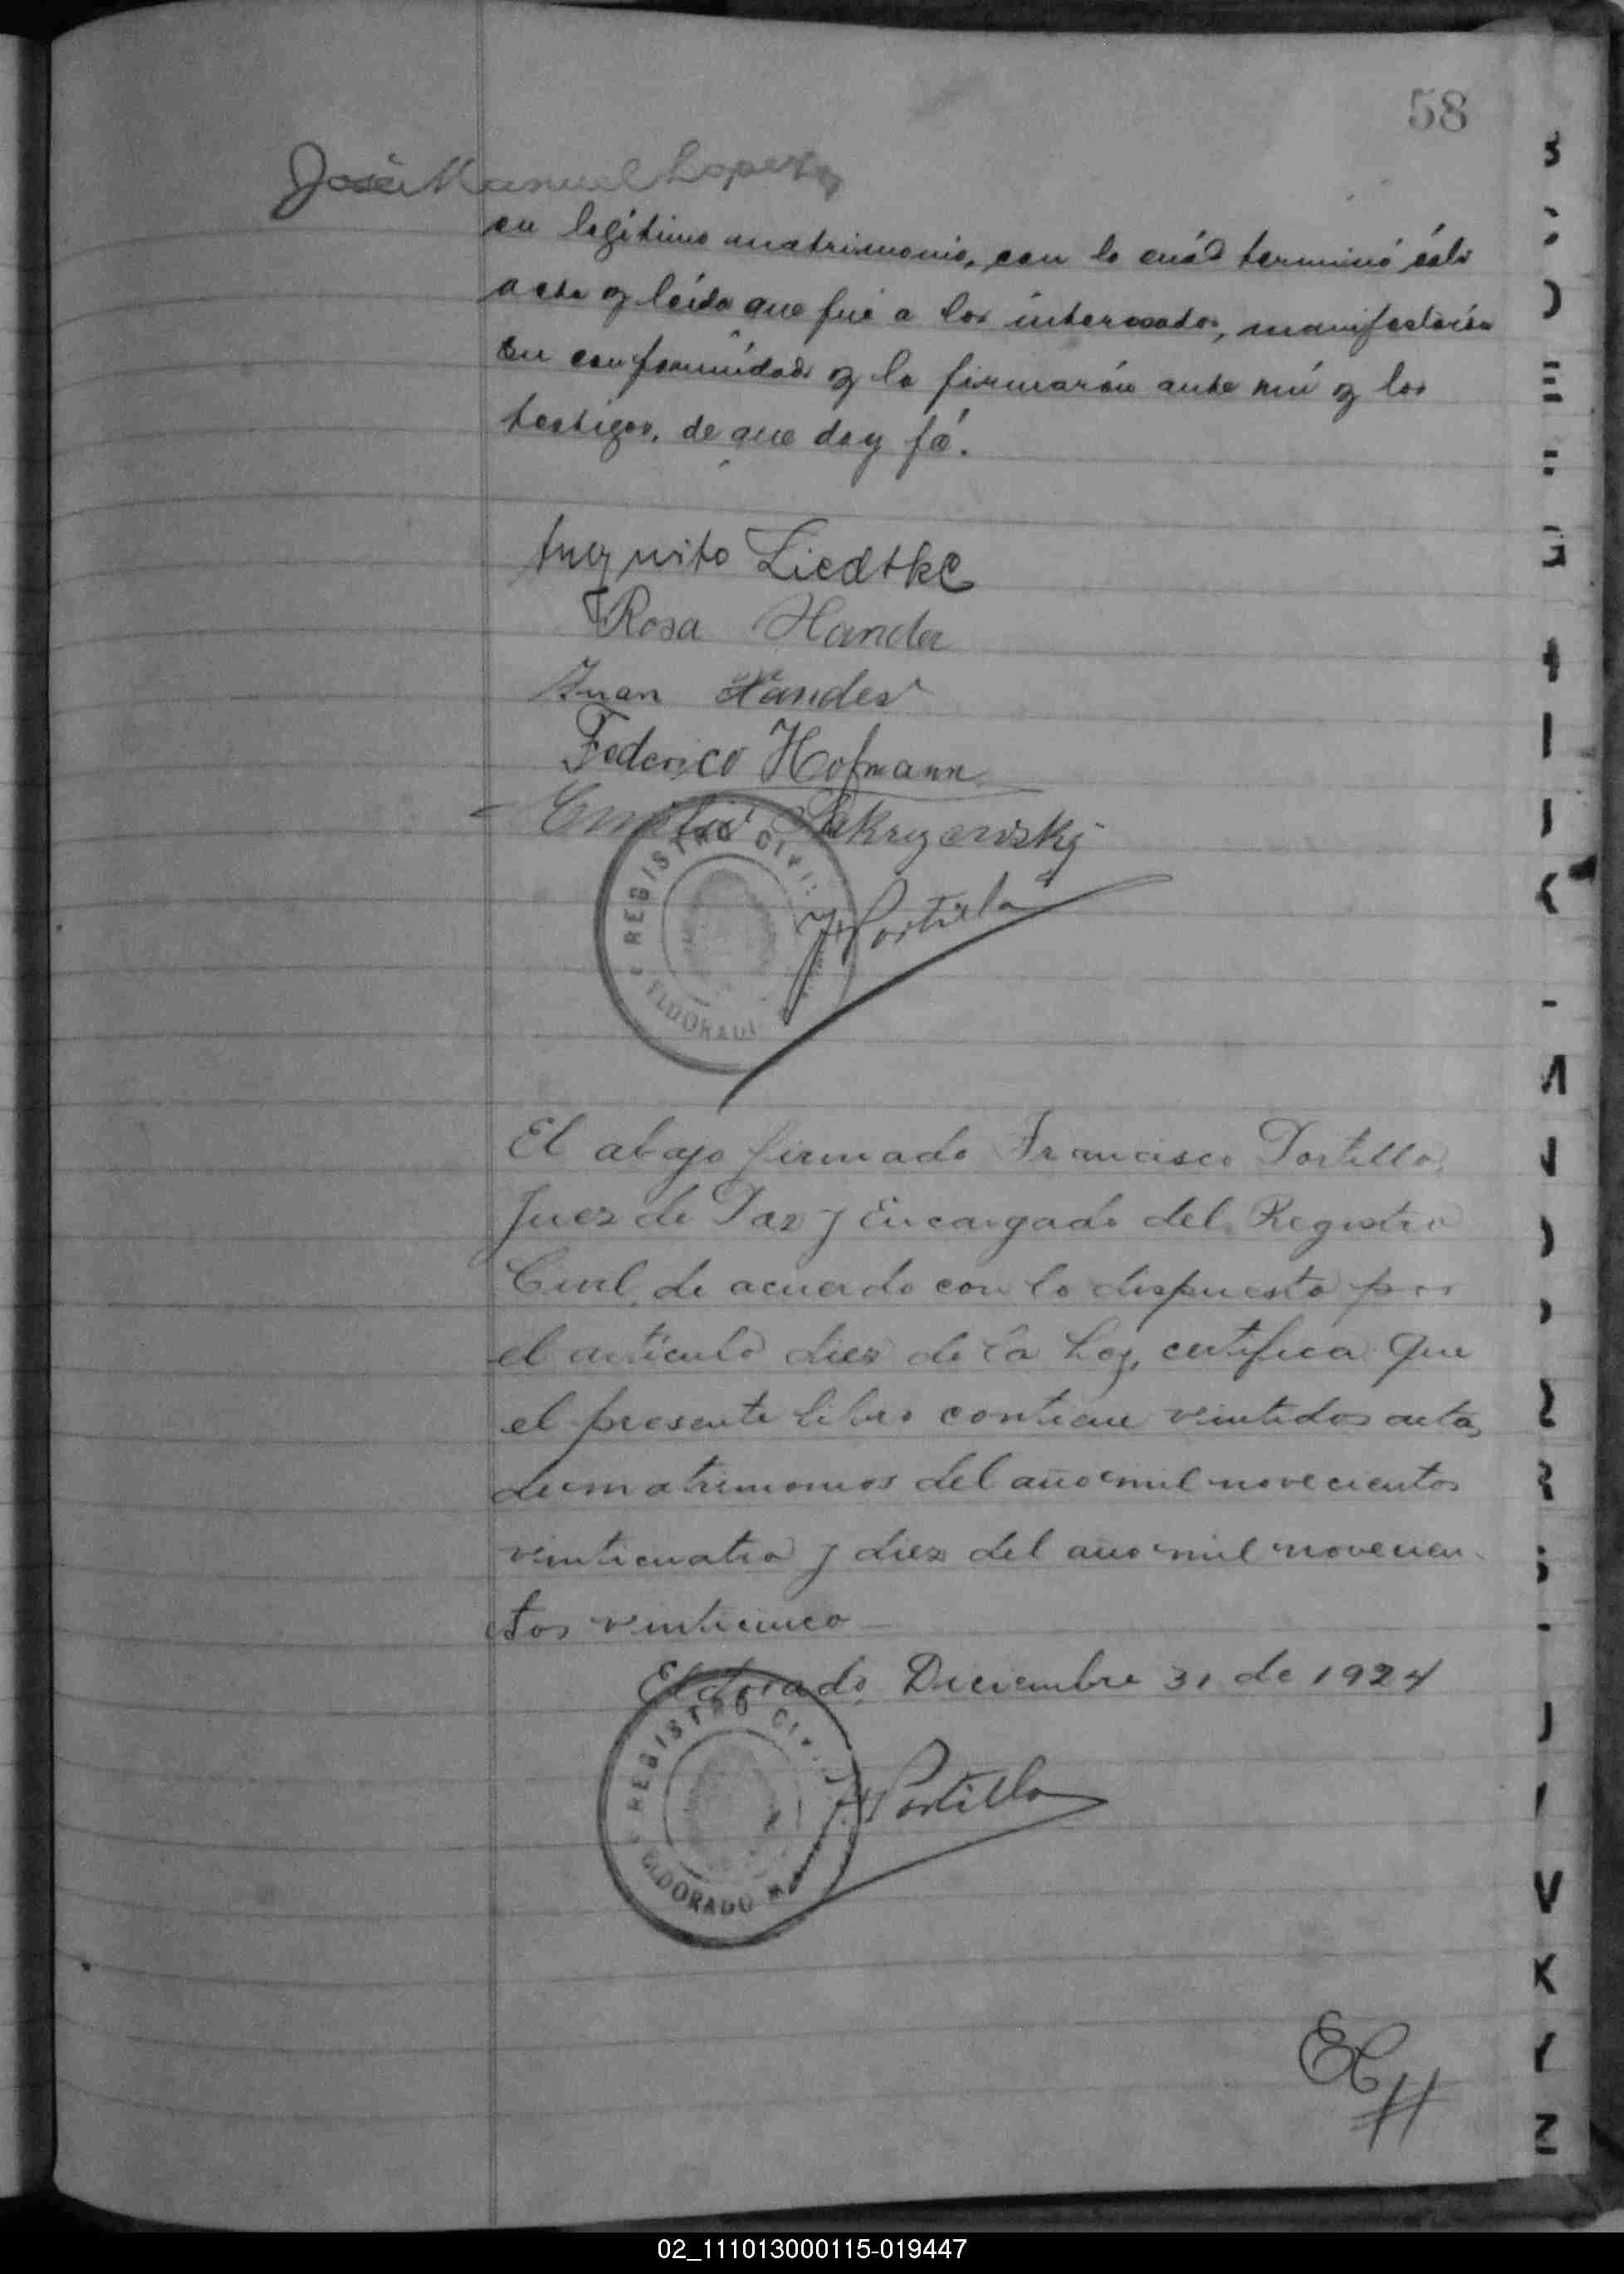 58
José Manuel Lopez
en legítimo matrimonio, con lo cuál terminó ésta
acta y leída que fué a los interesados, manifestarón
su conformidad y la firmarón ante mí y los
testigos, de que doy fé.
Liedtke
Rosa Hander
Juan Hander
Federico Hofmann
Emilio Sakrzewsky
REGISTRO CIVIL
ELDORADO
F Portillo
El abajo firmado Francisco Portillo,
Juez de Paz y Encargado del Registro
Civil, de acuerdo con lo dispuesto por
el artículo diez de la Ley, certifica que
el presente libro contiene veintidos actas
de matrimonios del año mil novecientos
veinticuatro y diez del año mil novecien-
tos veinticinco
Eldorado, Diciembre 31 de 1924
REGISTRO CIVIL
ELDORADO
F Portillo
V
K
Z
02_111013000115-019447